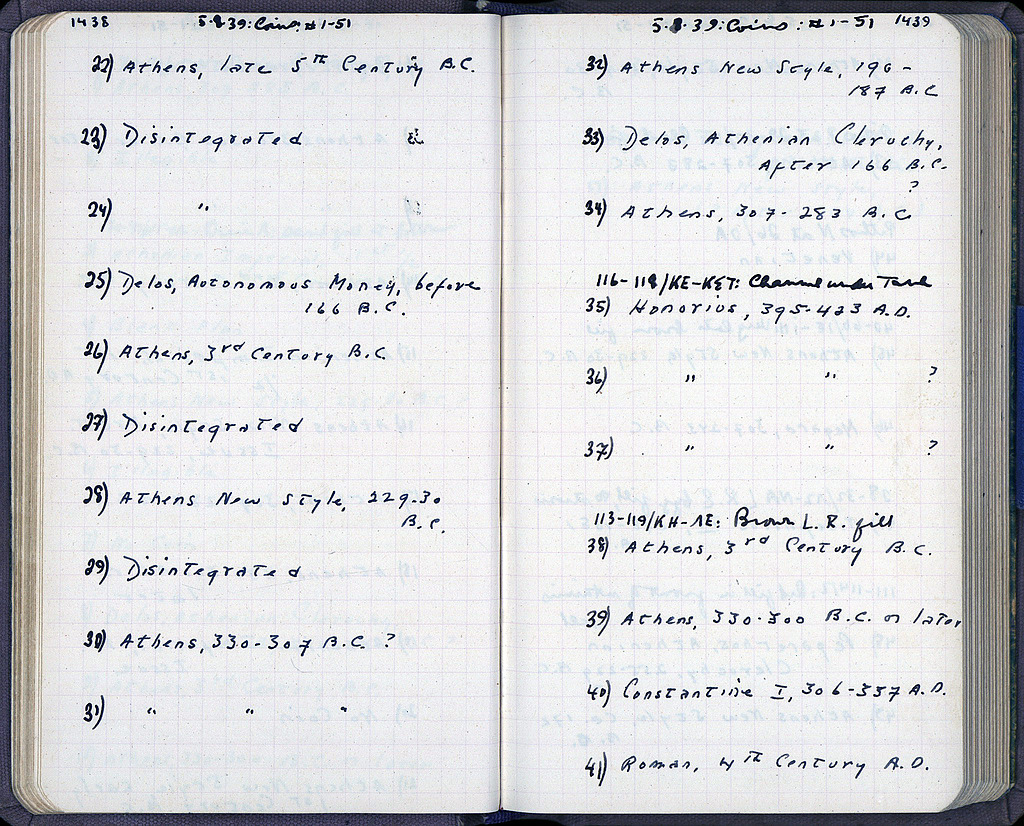 1438
5·8·39: Coins: #1-51
22) Athens, late 5th Century B.C.
23) Disintegrated
24) "
25) Delos, Autonomous Money, before
166 B.C.
26) Athens, 3rd Century B.C
27) Disintegrated
28) Athens New Style, 229-30
B.C.
29) Disintegrated
30) Athens, 330-307 B.C. ?
31) " " "
5·8·39: Coins: #1-51
1439
32) Athens New Style, 196-
187 B.C
33) Delos, Athenian Cleruchy,
After 166 B.C.
?
34) Athens, 307-283 B.C
116-118/KE-KΣΤ: Channel under Tank
35) Honorius, 395-423 A.D.
36) " " ?
37) " " ?
113-119/KH-ΛΕ: Brown L.R. fill
38) Athens, 3rd Century B.C.
39) Athens, 330-300 B.C. or later
40) Constantine I, 306-337 A.D.
41) Roman, 4th Century A.D.